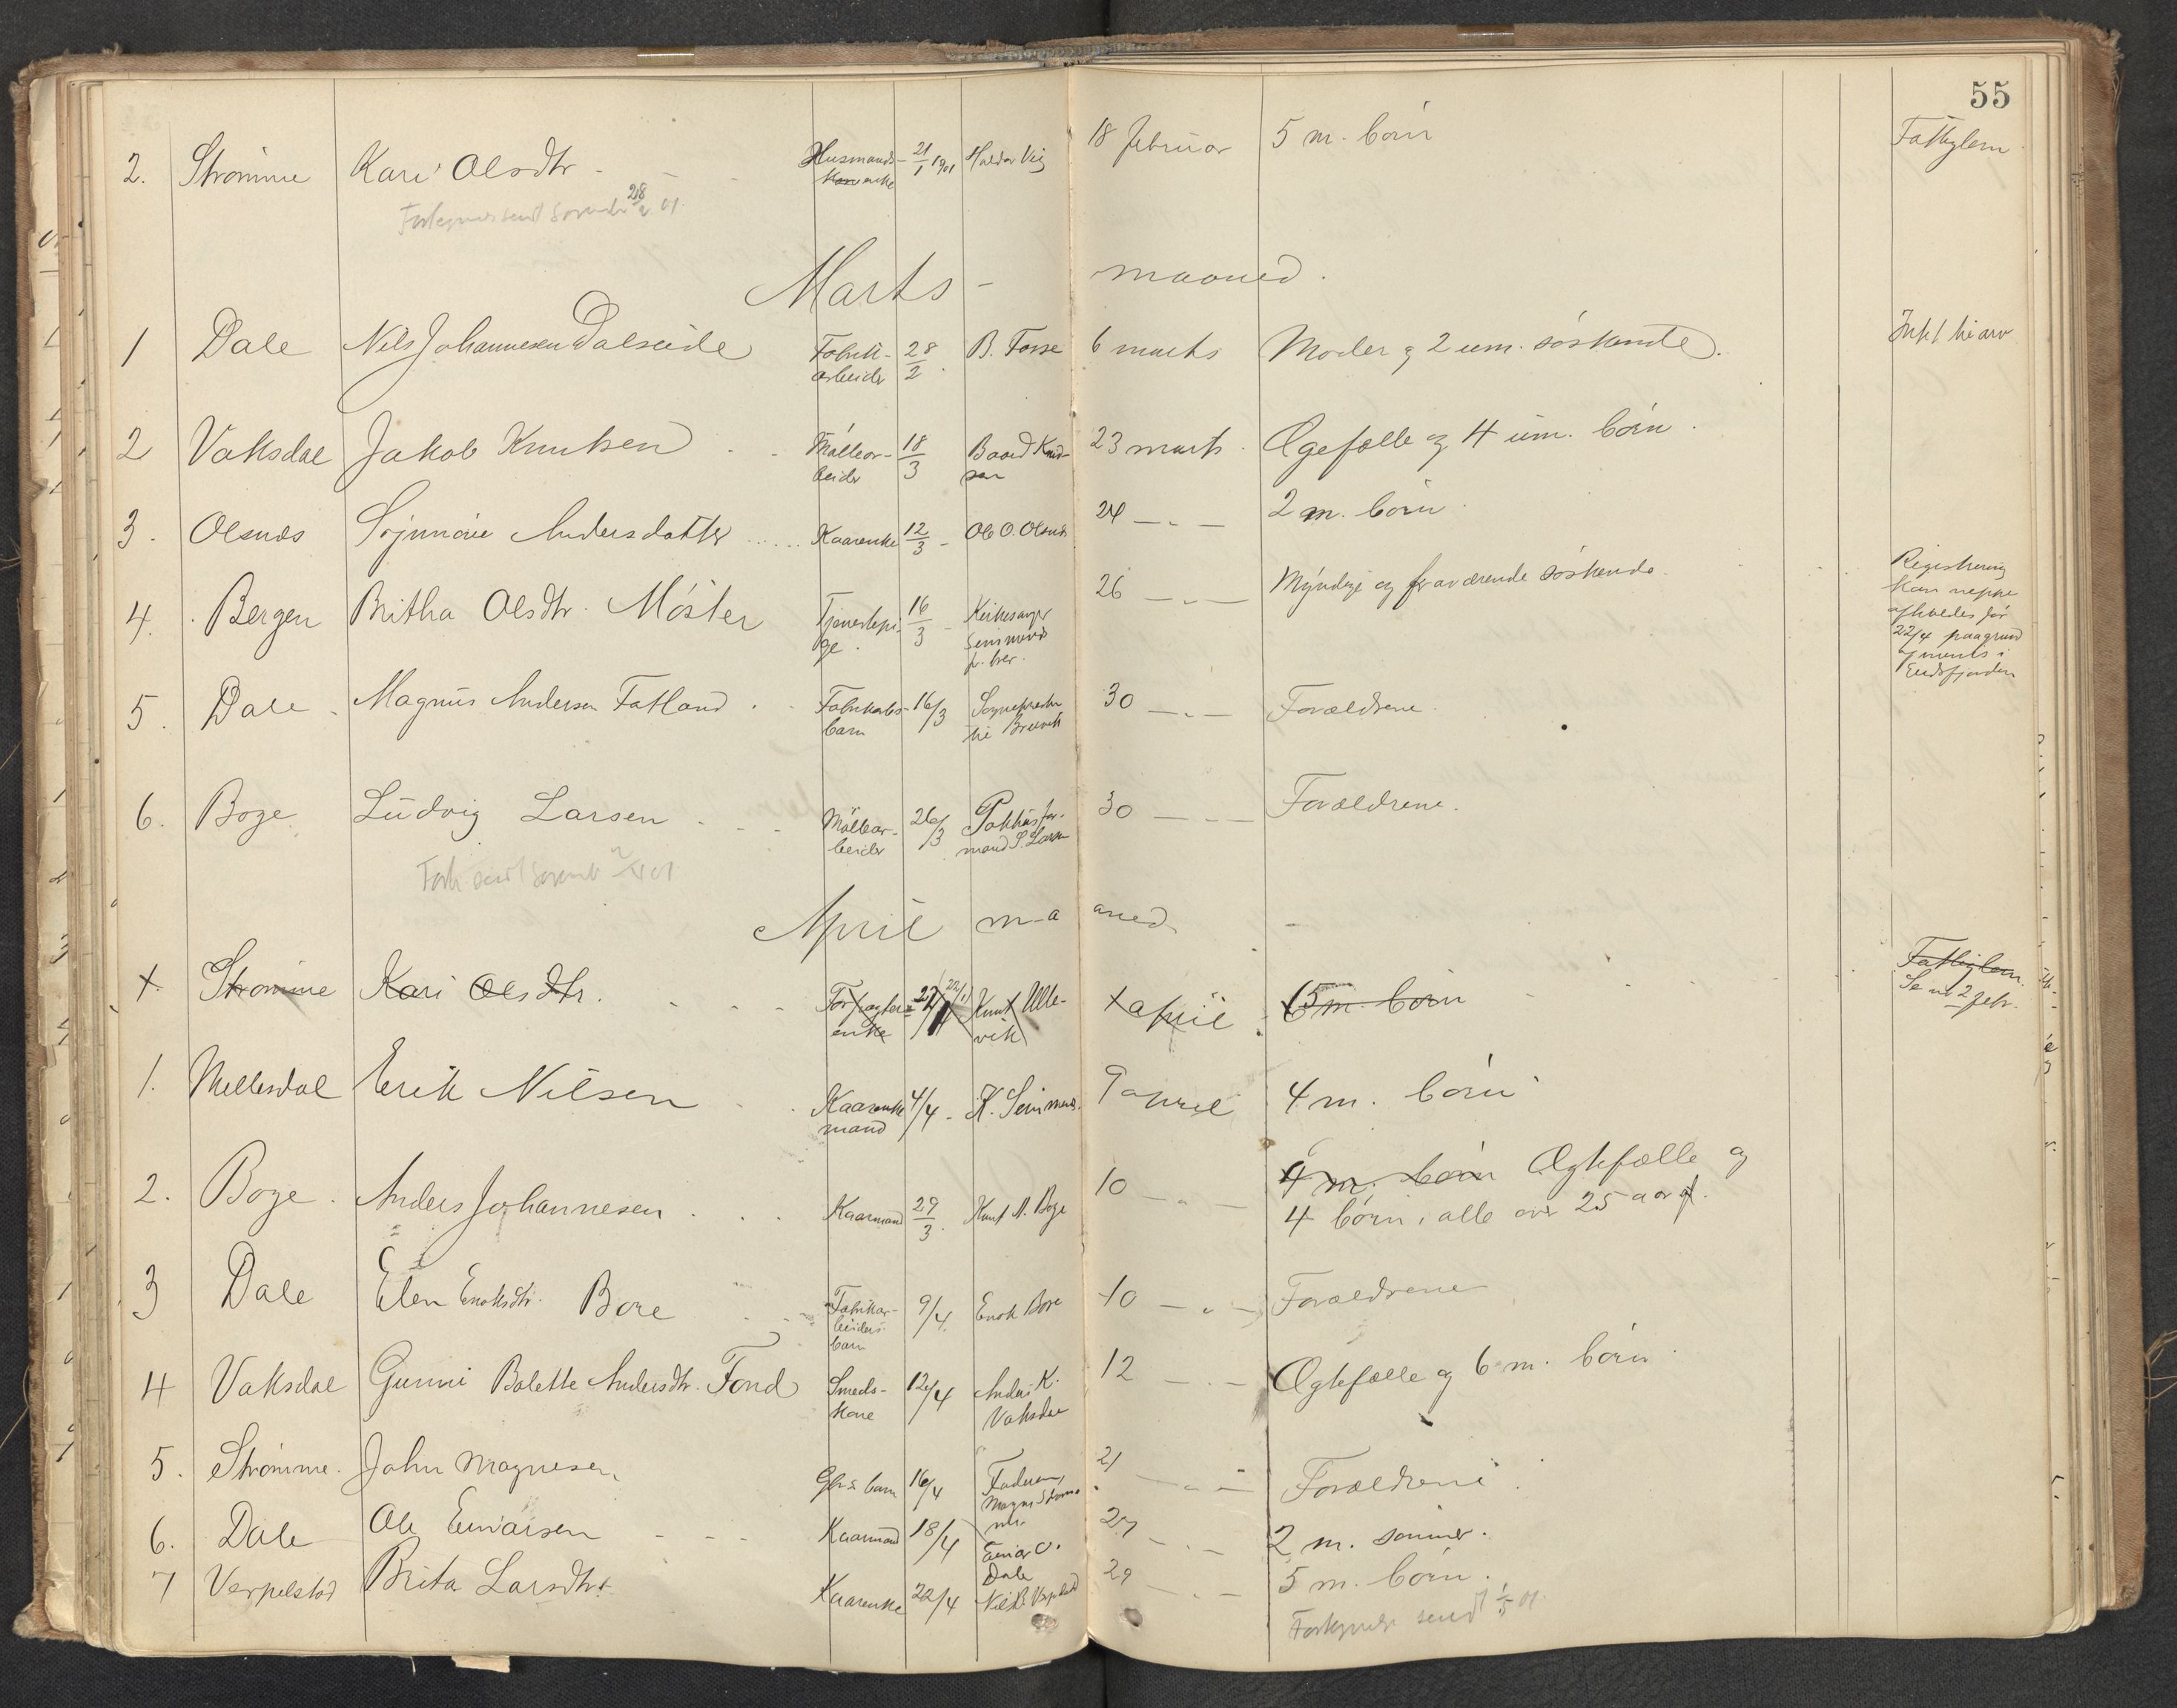 55
2. Strømme Kari Olsdtr - Husmands- 21/1 1901 Haldor Vig 18 februar 5 m. børn Fattiglem
enke
28/2 01.
Marts - maaned.
1 Dale Nils Johannesen Dalseide Fabrik- 28/2. B. Fosse 6 marts Moder og 2 um. søskende. Intet til arv
arbeider
2 Vaksdal Jakob Knutsen Møllear- 18/3 Baard Knud- 23 marts Ægefælle og 4 um. børn.
beider sen
3. Olsnes Andersdatter Kaarenke 12/3 - Ole O. Olsnes 24 - " - 2 m. børn.
4. Bergen Britha Olsdtr. Møster Tjenestepi- 16/3 - Kirkesanger 26 - " - Myndige og fraværende søskende. Registrering
ge. kan neppe
afholdes før
22/4 paagrund
5. Dale Magnus Andersen Fatland Fabrikarb- 16/3 Sogneprest 30 - " - Forældrene.
barn til Brevik
6. Boge Ludvig Larsen Møllear- 26/3 Pakhusfor- 30 - " - Forældrene.
beider mand S. Larsen
April maaned
+. Strømme Kari Olsdtr. Knut Ulle- april 5 m. børn Fattiglem.
enke vik Se no 2 febr.
1. Mellesdal Erik Nilsen Kaar 4/4 - K. Seim 9 april 4 m. børn
mand
2. Boge. Anders Johannesen Kaarmand 29/3. Knut N. Boge 10 - " - 4 m. børn Ægtefælle og
4 børn, alle over 25 aar gl.
3 Dale Elen Enoksdtr. Bore Fabrikar- 9/4. Enok Bore 10 - " - Forældrene
beiders
barn
4 Vaksdal Gunni Bolette Andersdtr. Fond Smeds- 12/4 Anders K. 12 - " - Ægtefælle og 6 m. børn.
kone Vaksdal
5. Strømme. John Magnesen barn 16/4 Faderen, 21 - " - Forældrene.
Magne Strøm-
me
6. Dale Ole Einarsen Kaarmand 18/4 Einar O. 27 - " - 2 m. sønner.
Dale
7 Verpelstad Brita Larsdtr. Kaarenke 22/4 29 - " - 5 m. børn.
send 1/5 01.